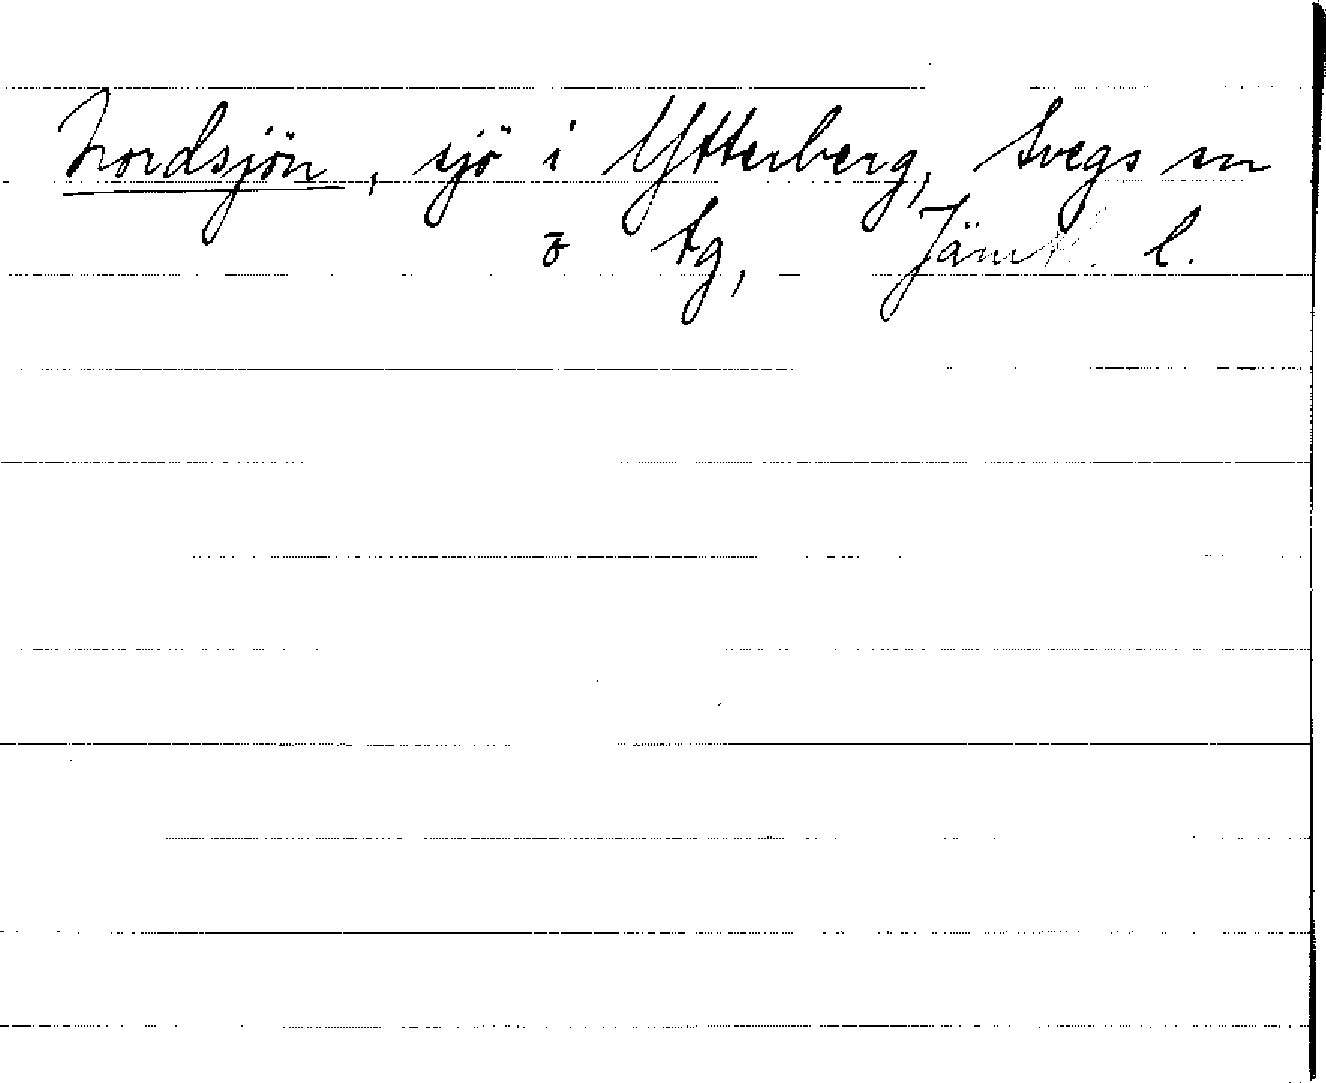 Nordsjön, sjö i Ytterberg, Svegs sn
o tg, Jämtl. l.